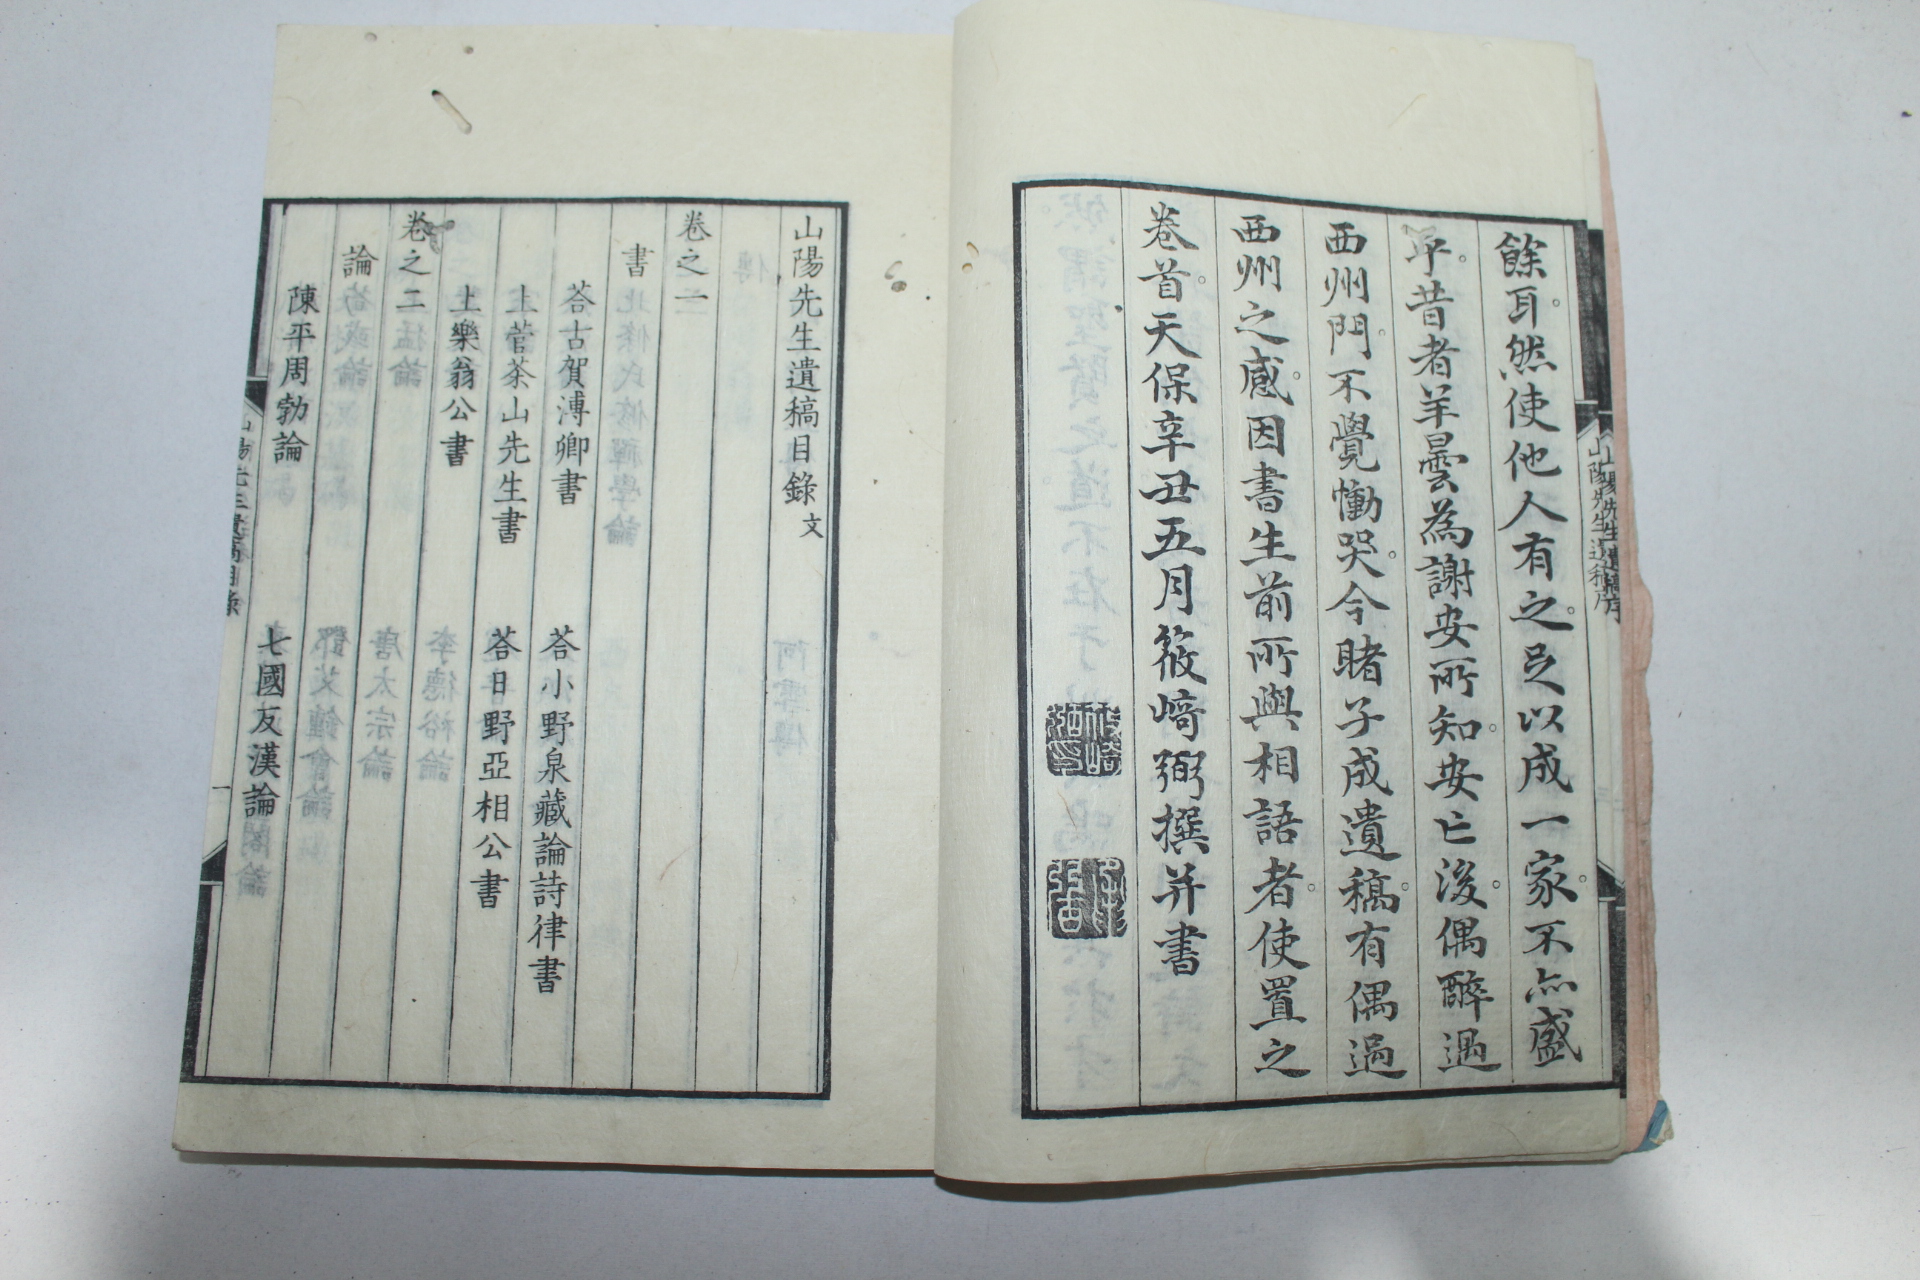 餘耳然使他人有之足以成一家不亦盛
乎昔者羊曇為謝安所知安亡後偶醉過
西州門不覺慟哭今睹子成遺稿有偶過
西州之感因書生前所與相語者使置之
卷首天保辛丑五月筱崎弼撰并書
山陽先生遺稿序
山陽先生遺稿目錄 文
卷之一
書
荅古賀溥卿書 荅小野泉藏論詩律書
上菅茶山先生書 荅日野亞相公書
上樂翁公書
卷之二
論
陳平周勃論 七國反漢論
山陽先生遺稿目錄 一